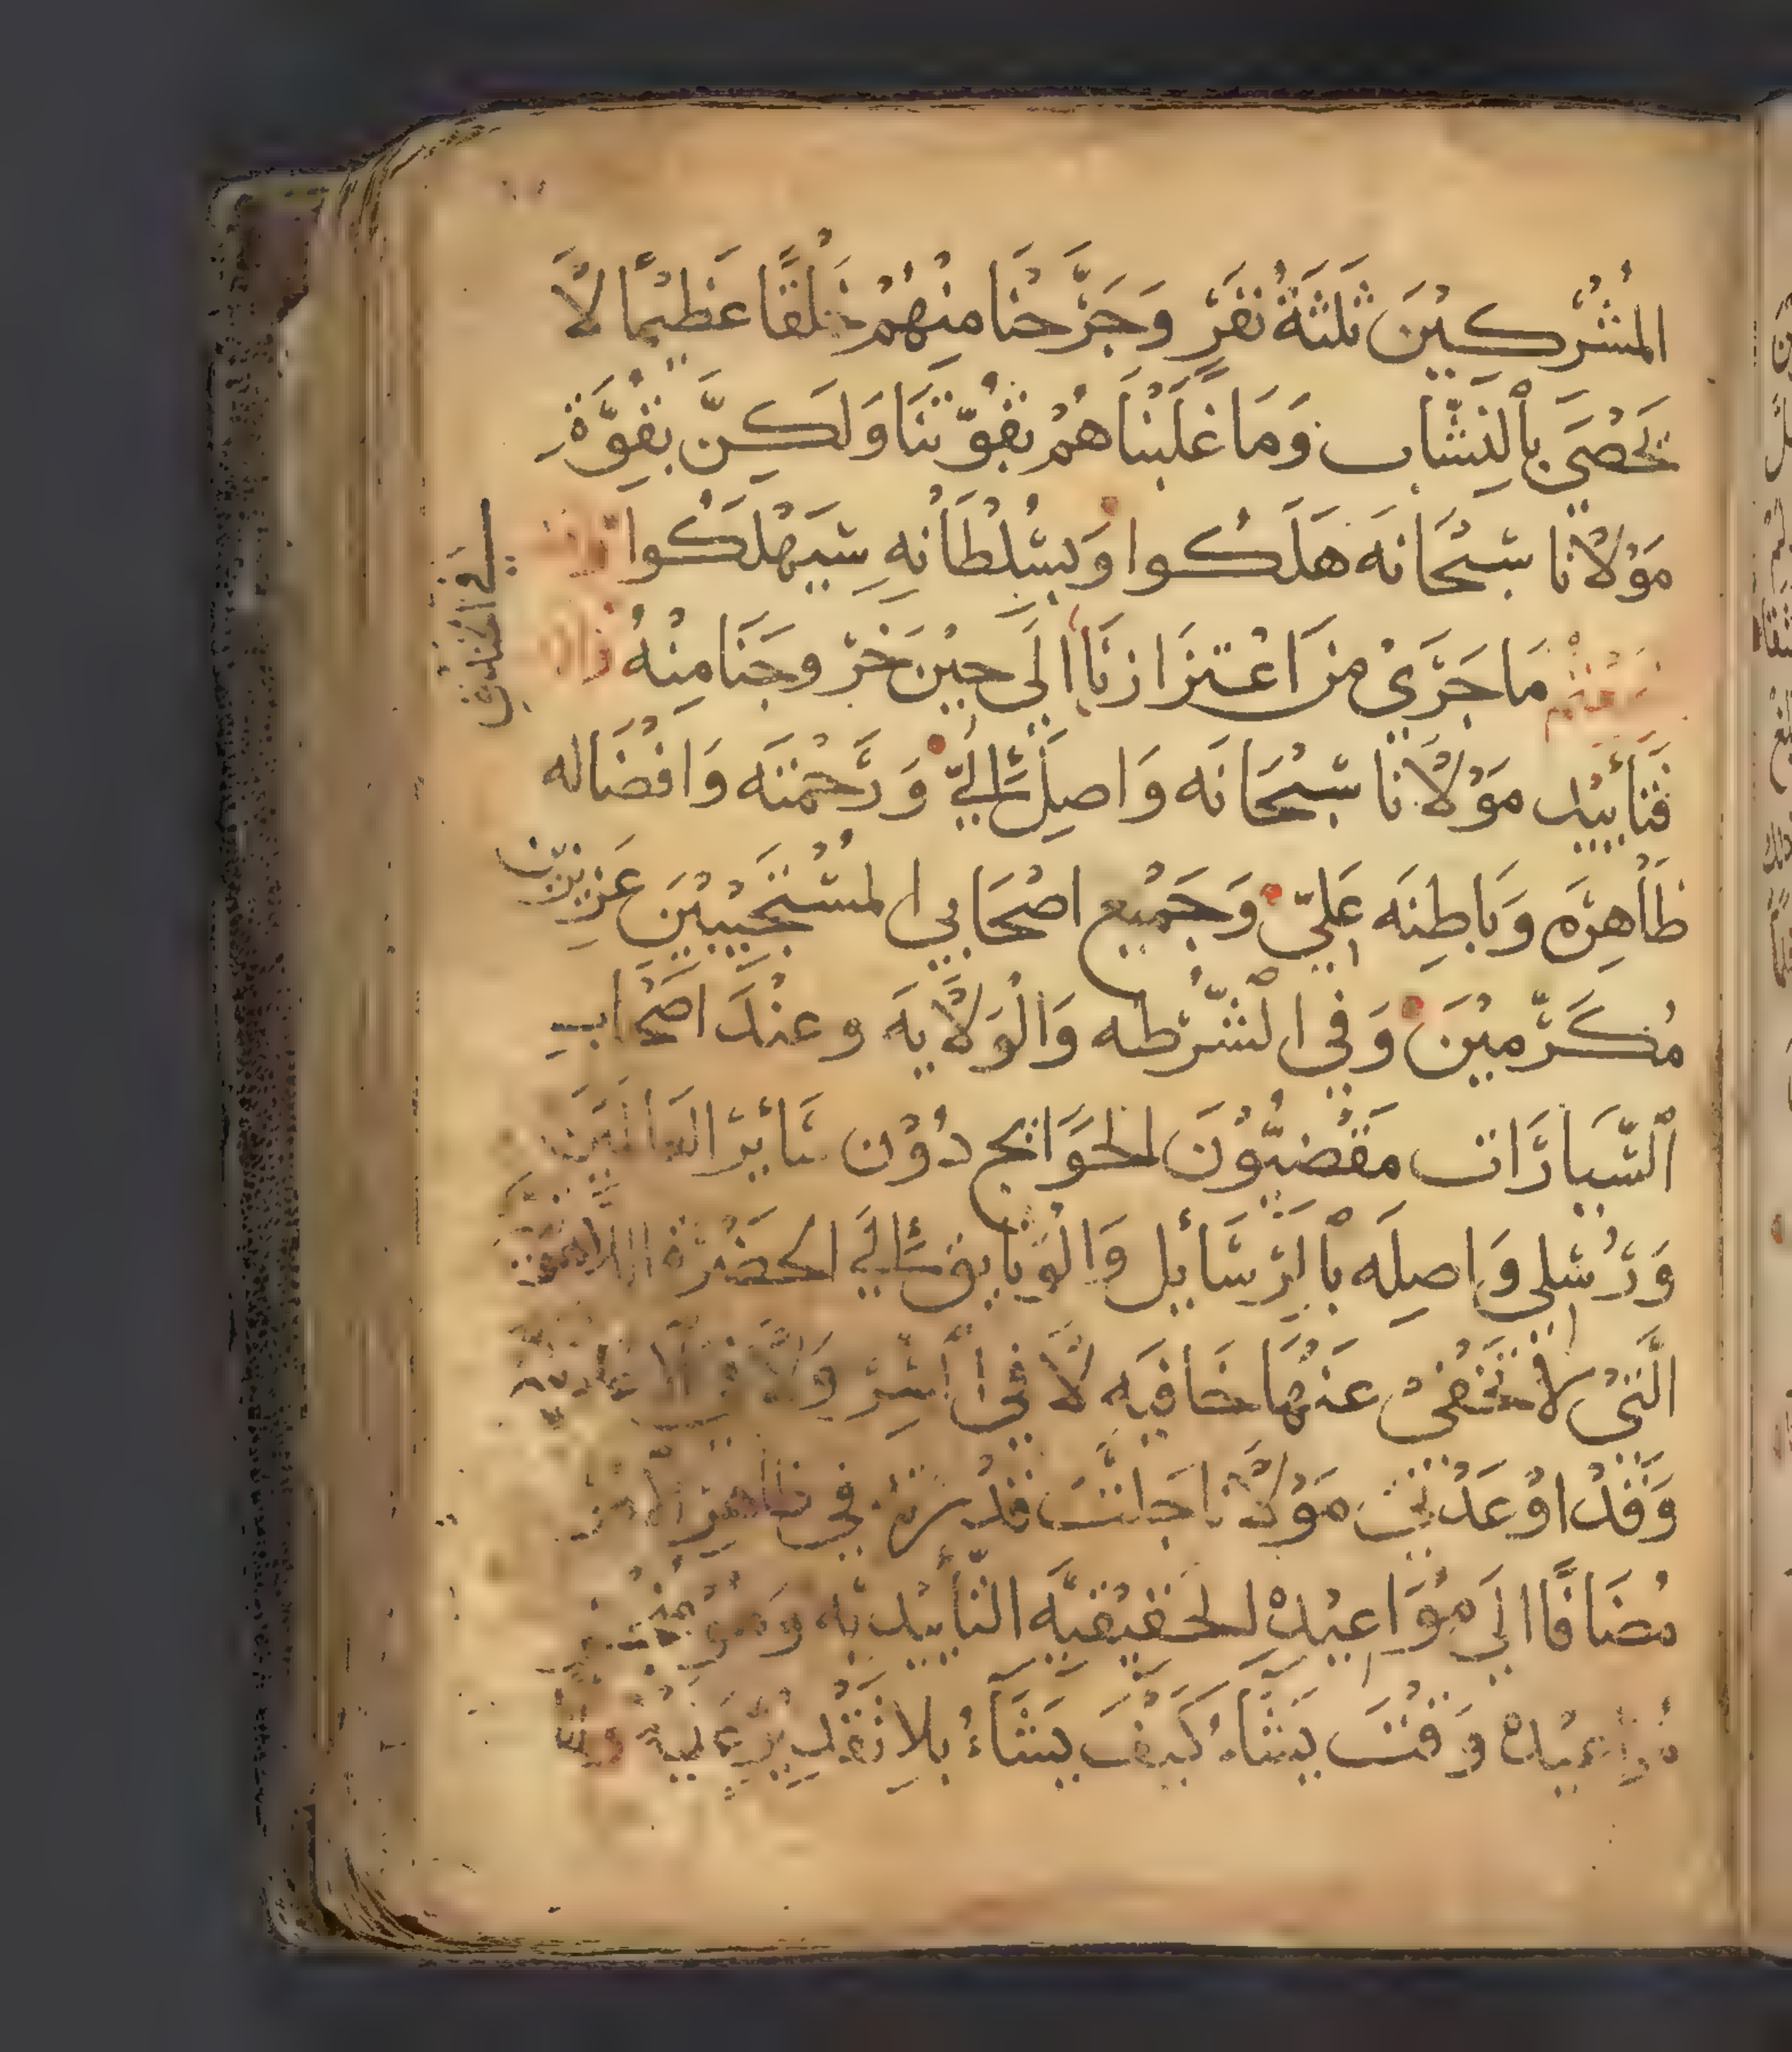 المُشْرِكِيْنَ ثَلثَةُ نَفَرٍ وَجَرَّحْنَا مِنْهُمْ خَلْقًا عَظِيْمًا لَا
تُحْصَى بِالنِشَّاب وَمَا غَلَبْنَاهُمْ بِقُوَّتِنَا وَلَكِنَّ بِقُوَّةِ
مَوْلَانَا سُبْحَانَه هَلَكُوا وَبِسُلْطَانِهِ سَيَهْلَكُوا
مَا جَرَى مِنْ اعْتِزَازِنَا الَى حِيْن خَرْوجَنَا مِنْهُ
فَتَأييْد مَوْلَانَا سُبْحَانَه وَاصِلٌ الَيّ وَرَحْمَتَه وَافْضَاله
ظَاهِرَه وَبَاطِنَه عَلَيّ وَجَمِيْع اصْحَابِي المسْتَجِيْبِيْنَ عَزِيزِيْن
مُكَرَّمِيْنَ وَفِي الشُّرْطه وَالْوَلَايَه وعِنْدَ اصْحَاب
السِّيَارَات مَقْضِيُّوْنَ الحَوَايج دُوْن سَائِر العَالَمِيْن
وَرُسُلِي وَاصِلَه بِالرَسَائِل وَالْوَثَايِق الَي الحَضْرَة اللاهوتيه
الَّتِيْ لَا تَخْفَىْ عَنْهَا خَافِيَه لَا فِي السِّرّ وَلَا فِي
وَقَدْ اوْعَدْنِيَ مَوْلَانَا جَلَّتَ قُدْرَته فِي ظاهِر
مُضَافًا الَى مُوَاعِيْدِهْ الحَقِيْقِيَّه التَّأْيِيْدِيَّه وَهُوَ
مُوَاعِيْدِهْ وَقْتَ يَشَاءُ كَيْفَ يَشَاءُ بِلَا تَقْدِيْرٍ عَلَيْهِ
في الخندق